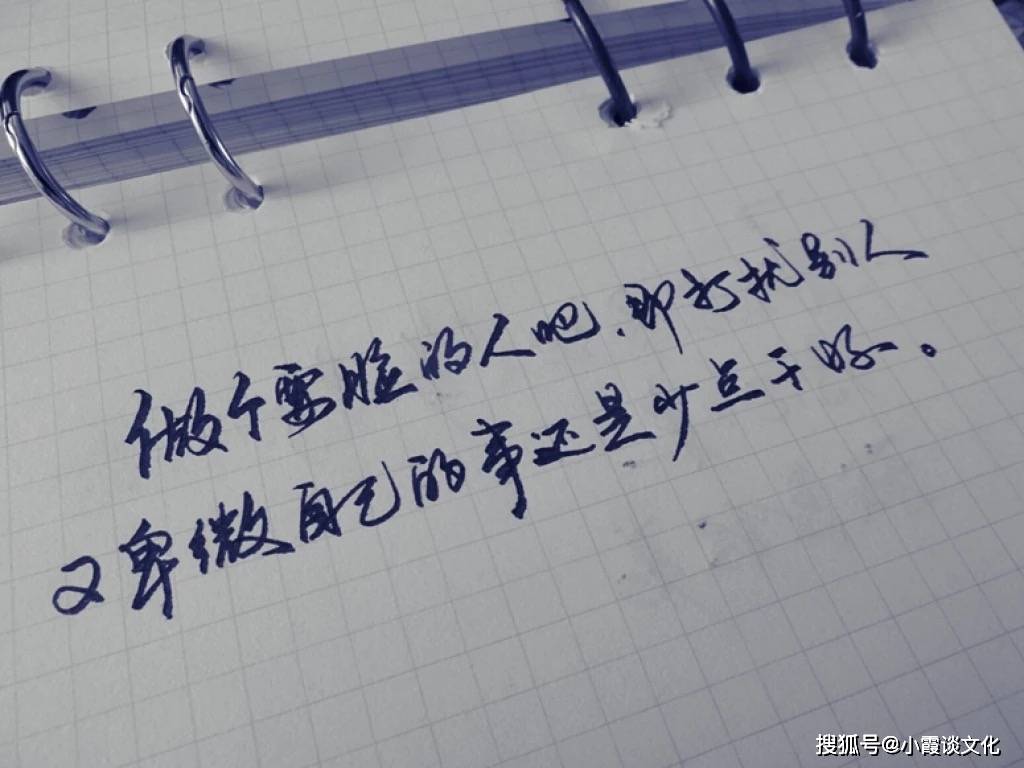 做个要脸的人吧、即打扰别人
又卑微自己的事还是少点干好。
搜狐号@小霞谈文化